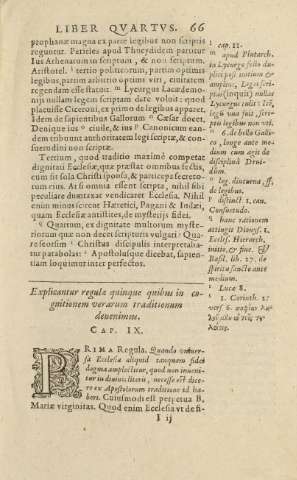 LIBER QVARTVS. 66
prophanæ magna ex parte legibus non scriptis
reguntur. Patricies apud Thucydidem partitur
Ius Athenarum in scriptum, & non scriptum.
Aristotel. l tertio politicorum, partim optimis
legibus, partim arbitrio optimi viri, ciuitatem
regendam esse statuit. m Lycurgus Lacædemo-
nijs nullam legem scriptam dare voluit: quod
placuisse Ciceroni, ex primo de legibus apparet.
Idem de sapientibus Gallorum n Cæsar docet.
Denique ius o ciuile, & ius p Canonicum ean-
dem tribuunt authoritatem legi scriptæ, & con-
suetudini non scriptæ.
Tertium, quod traditio maximè competat
dignitati Ecclesiæ, quæ præstat omnibus sectis,
cum sit sola Christi sponsa, & particeps secreto-
rum eius. At si omnia essent scripta, nihil sibi
peculiare duæ vendicaret Ecclesia. Nihil
enim minus scirent Hæretici, Pagani & Iudæi,
quam Ecclesiæ antistites, de mysterijs fidei.
q Quartum, ex dignitate multorum myste-
riorum quæ non decet scripturis vulgari: Qua-
re secretim r Christus discipulis interpretaba-
tur parabolas: s Apostolusque dicebat, sapien-
tiam loquimur inter perfectos.
l cap. 11.
m apud Plutarch.
in Lycurgo
n 6. de bello Galli-
co, longe ante me-
dium cum agit de
disciplina Drui-
dum.
o leg. diuturna, ff,
de legibus.
p distinct. 1. can.
Consuetudo.
q hanc rationem
attingit Dionys. l.
Eccles. Hierarch.
initio, & fine.
Basil. lib. 27. de
spiritu sancto ante
medium.
r Luce 8.
s 1. Corinth. 2
vers. 6.
Explicantur regulæ quinque quibus in co-
gnitionem verarum traditionum
deuenimus.
CAP. IX.
PRIMA Regula. Quando vniuer-
sa Ecclesia aliquid tanquam fidei
dogma amplectitur, quod non inueni-
tur in diuinis literis, necesse est dice-
re ex Apostolorum traditione id ha-
beri. Cuiusmodi est perpetua B.
Mariæ virginitas. Quod enim Ecclesia vt de fi-
I ij